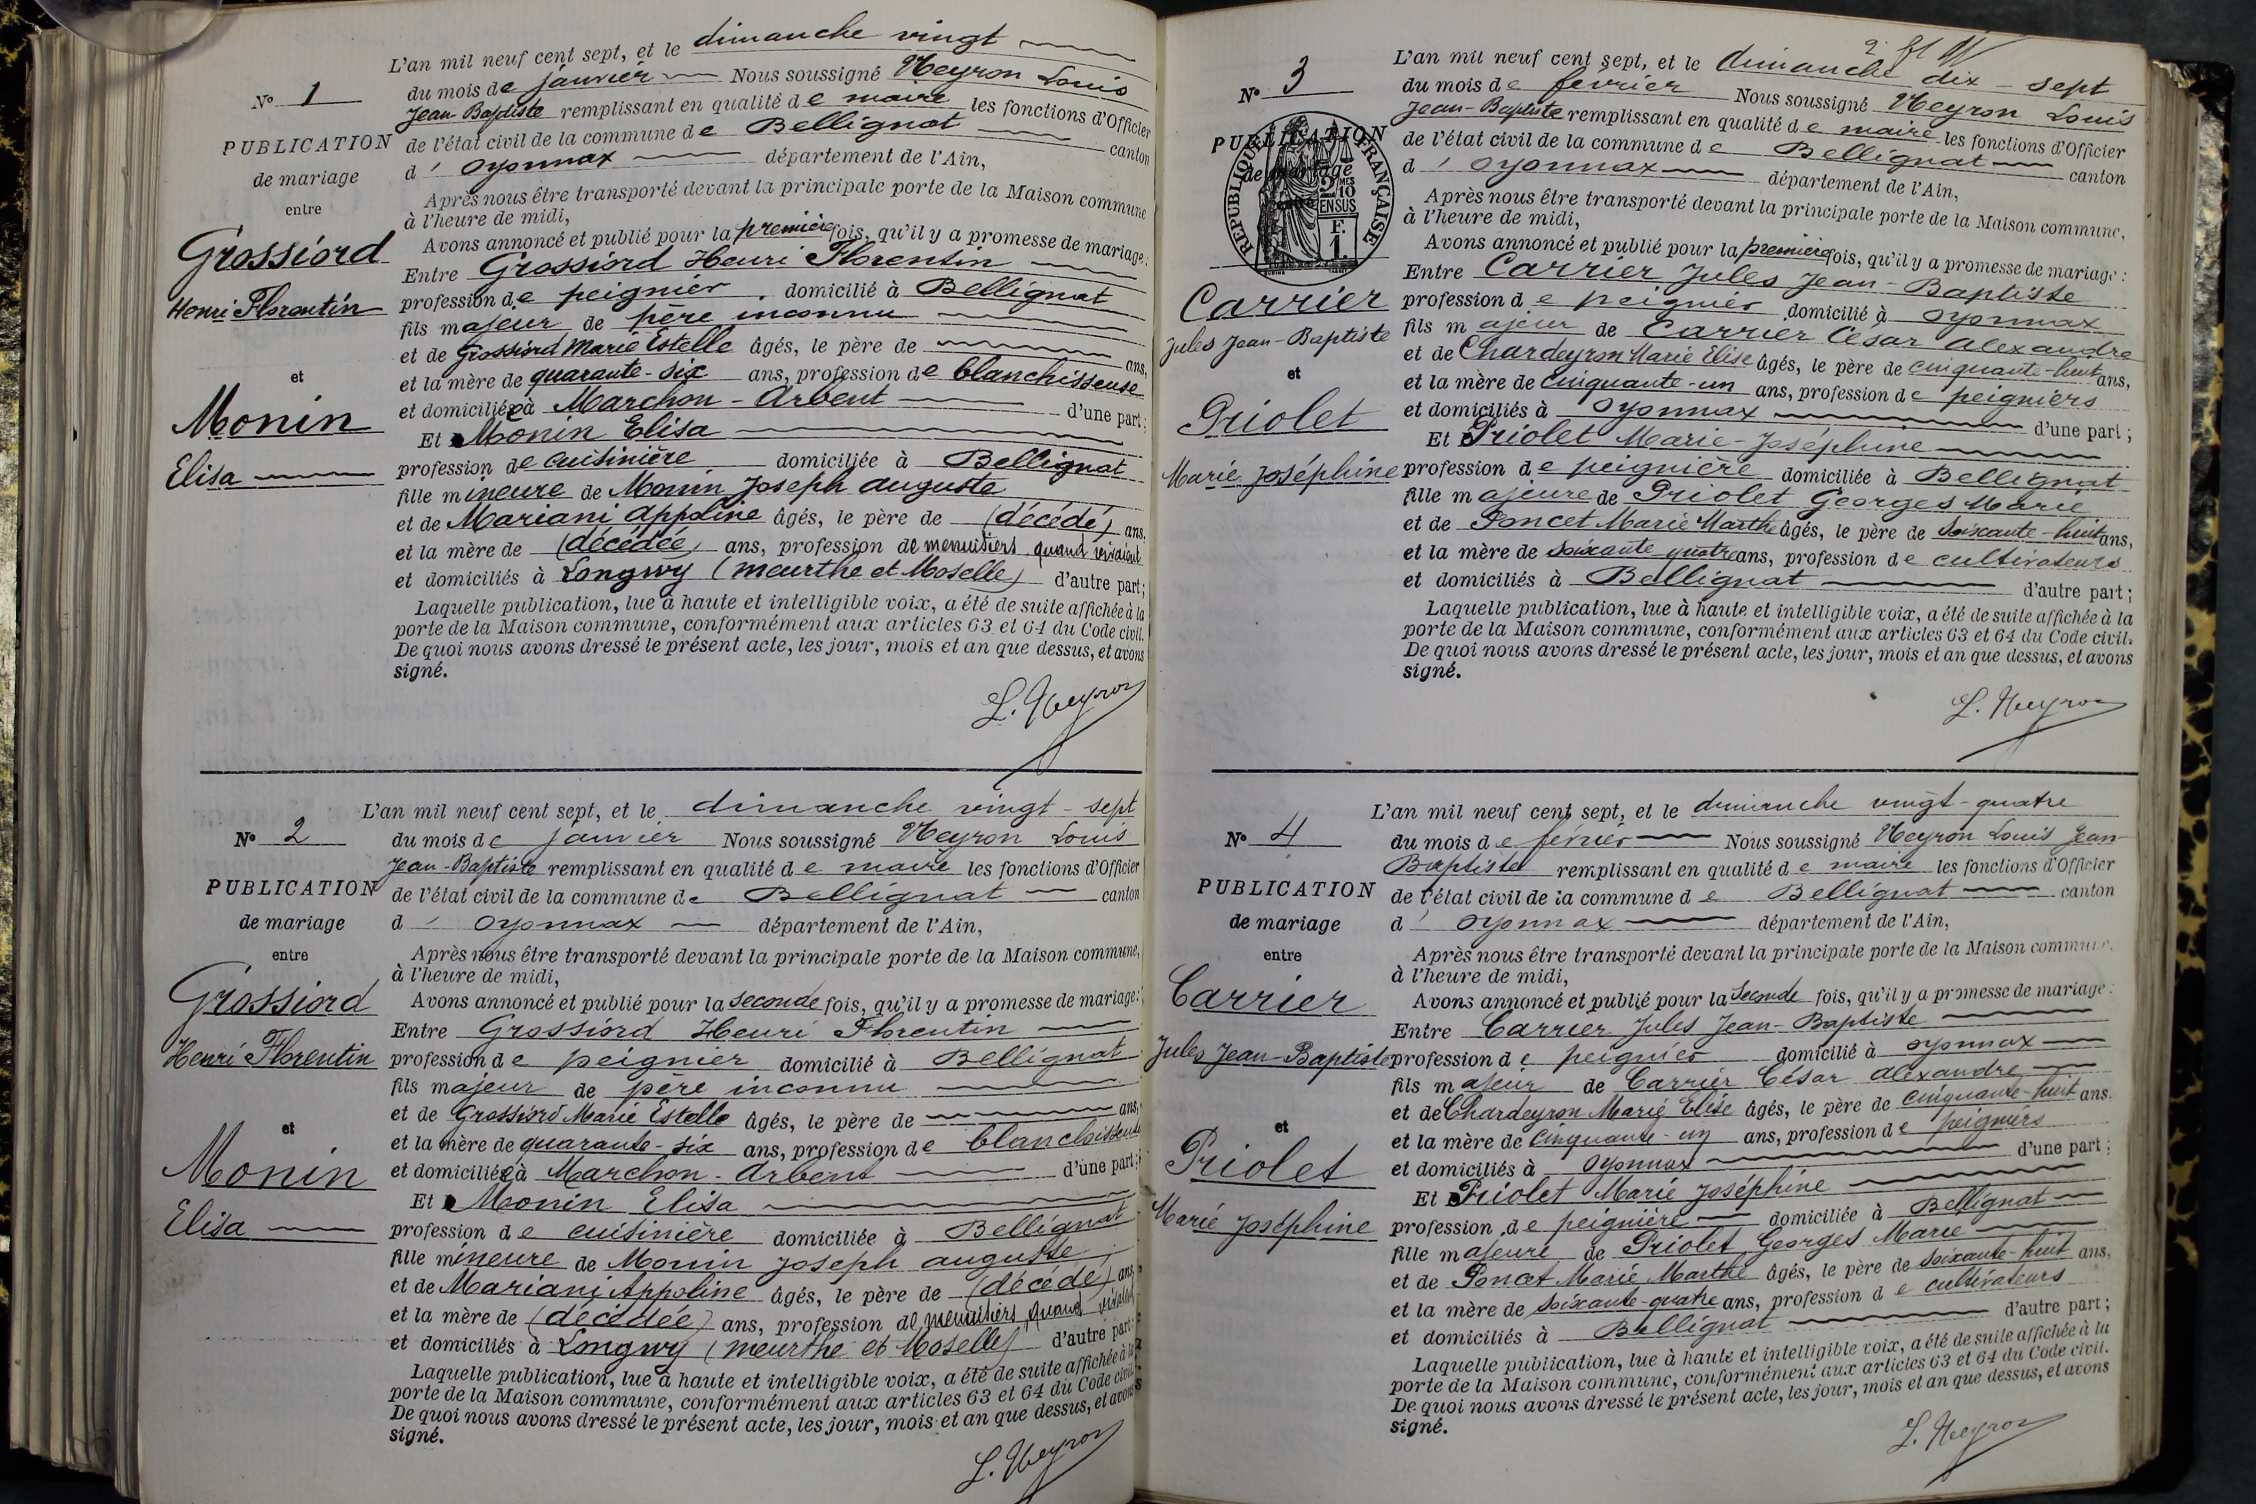 L'an mil neuf cent sept, et le dimanche vingt
Nº 1
du mois de janvier Nous soussigné Neyron Louis
Jean-Baptiste remplissant en qualité de maire les fonctions d'Officier
PUBLICATION
de l'état civil de la commune de Bellignat canton
de mariage
d'Oyonnax département de l'Ain,
entre
Après nous être transporté devant la principale porte de la Maison commune
à l'heure de midi,
Grossiord
Avons annoncé et publié pour la première fois, qu'il y a promesse de mariage:
Entre Grossiord Henri Florentin
Henri Florentin
profession de peignier domicilié à Bellignat
fils majeur de père inconnu
et de Grossiord Marie Estelle âgés, le père de ans,
et
et la mère de quarante-six ans, profession de blanchisseuse
et domiciliée à Marchon-Arbent d'une part;
Monin
Et Monin Elisa
Elisa
profession de cuisinière domiciliée à Bellignat
fille mineure de Monin Joseph Auguste
et de Mariani Appoline âgés, le père de (décédé) ans,
et la mère de (décédée) ans, profession de menuisiers quand vivaient
et domiciliés à Longwy (Meurthe et Moselle) d'autre part;
Laquelle publication, lue à haute et intelligible voix, a été de suite affichée à la
porte de la Maison commune, conformément aux articles 63 et 64 du Code civil.
De quoi nous avons dressé le présent acte, les jour, mois et an que dessus, et avons
signé.
L. Neyron
L'an mil neuf cent sept, et le dimanche vingt-sept
Nº 2
du mois de janvier Nous soussigné Neyron Louis
Jean-Baptiste remplissant en qualité de maire les fonctions d'Officier
PUBLICATION
de l'état civil de la commune de Bellignat canton
de mariage
d'Oyonnax département de l'Ain,
entre
Après nous être transporté devant la principale porte de la Maison commune,
à l'heure de midi,
Grossiord
Avons annoncé et publié pour la seconde fois, qu'il y a promesse de mariage:
Entre Grossiord Henri Florentin
Henri Florentin
profession de peignier domicilié à Bellignat
fils majeur de père inconnu
et de Grossiord Marie Estelle âgés, le père de ans,
et
et la mère de quarante-six ans, profession de blanchisseuse
et domiciliée à Marchon-Arbent d'une part;
Monin
Et Monin Elisa
Elisa
profession de cuisinière domiciliée à Bellignat
fille mineure de Monin Joseph Auguste
et de Mariani Appoline âgés, le père de (décédé) ans,
et la mère de (décédée) ans, profession de menuisiers quand vivaient
et domiciliés à Longwy (Meurthe et Moselle) d'autre part;
Laquelle publication, lue à haute et intelligible voix, a été de suite affichée à la
porte de la Maison commune, conformément aux articles 63 et 64 du Code civil.
De quoi nous avons dressé le présent acte, les jour, mois et an que dessus, et avons
signé.
L. Neyron
L'an mil neuf cent sept, et le dimanche dix-sept
Nº 3
du mois de février Nous soussigné Neyron Louis
Jean-Baptiste remplissant en qualité de maire les fonctions d'Officier
PUBLICATION
de l'état civil de la commune de Bellignat canton
de mariage
d'Oyonnax département de l'Ain,
RÉPUBLIQUE FRANÇAISE
2/10 MES
EN SUS
F.
1.
Après nous être transporté devant la principale porte de la Maison commune,
à l'heure de midi,
Avons annoncé et publié pour la première fois, qu'il y a promesse de mariage:
Entre Carrier Jules Jean-Baptiste
Carrier
profession de peignier domicilié à Oyonnax
Jules Jean-Baptiste
fils majeur de Carrier César Alexandre
et de Chardeyron Marie Elise âgés, le père de cinquante-huit ans,
et
et la mère de cinquante-un ans, profession de peigniers
et domiciliés à Oyonnax d'une part;
Priolet
Et Priolet Marie-Joséphine
Marie Joséphine
profession de peignière domiciliée à Bellignat
fille majeure de Priolet Georges Marie
et de Poncet Marie Marthe âgés, le père de soixante-huit ans,
et la mère de soixante-quatre ans, profession de cultivateurs
et domiciliés à Bellignat d'autre part;
Laquelle publication, lue à haute et intelligible voix, a été de suite affichée à la
porte de la Maison commune, conformément aux articles 63 et 64 du Code civil.
De quoi nous avons dressé le présent acte, les jour, mois et an que dessus, et avons
signé.
L. Neyron
L'an mil neuf cent sept, et le dimanche vingt-quatre
Nº 4
du mois de février Nous soussigné Neyron Louis Jean
Baptiste remplissant en qualité de maire les fonctions d'Officier
PUBLICATION
de l'état civil de la commune de Bellignat canton
de mariage
d'Oyonnax département de l'Ain,
entre
Après nous être transporté devant la principale porte de la Maison commune,
à l'heure de midi,
Carrier
Avons annoncé et publié pour la seconde fois, qu'il y a promesse de mariage:
Entre Carrier Jules Jean-Baptiste
Jules Jean-Baptiste
profession de peignier domicilié à Oyonnax
fils majeur de Carrier César Alexandre
et de Chardeyron Marie Elise âgés, le père de cinquante-huit ans.
et
et la mère de cinquante-un ans, profession de peigniers
et domiciliés à Oyonnax d'une part;
Priolet
Et Priolet Marie Joséphine
Marie Joséphine
profession de peignière domiciliée à Bellignat
fille majeure de Priolet Georges Marie
et de Poncet Marie Marthe âgés, le père de soixante-huit ans,
et la mère de soixante-quatre ans, profession de cultivateurs
et domiciliés à Bellignat d'autre part;
Laquelle publication, lue à haute et intelligible voix, a été de suite affichée à la
porte de la Maison commune, conformément aux articles 63 et 64 du Code civil.
De quoi nous avons dressé le présent acte, les jour, mois et an que dessus, et avons
signé.
L. Neyron